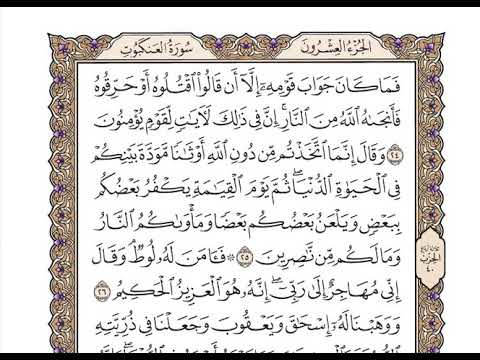 الجُزْءُ العِشْرُونَ
سُورَةُ العَنكَبُوتِ
فَمَا كَانَ جَوَابَ قَوْمِهِۦٓ إِلَّآ أَن قَالُوا۟ ٱقْتُلُوهُ أَوْ حَرِّقُوهُ
فَأَنجَىٰهُ ٱللَّهُ مِنَ ٱلنَّارِ ۚ إِنَّ فِى ذَٰلِكَ لَـَٔايَـٰتٍ لِّقَوْمٍ يُؤْمِنُونَ
٢٤ وَقَالَ إِنَّمَا ٱتَّخَذْتُم مِّن دُونِ ٱللَّهِ أَوْثَـٰنًا مَّوَدَّةَ بَيْنِكُمْ
فِى ٱلْحَيَوٰةِ ٱلدُّنْيَا ۖ ثُمَّ يَوْمَ ٱلْقِيَـٰمَةِ يَكْفُرُ بَعْضُكُم
بِبَعْضٍ وَيَلْعَنُ بَعْضُكُم بَعْضًا وَمَأْوَىٰكُمُ ٱلنَّارُ
وَمَا لَكُم مِّن نَّـٰصِرِينَ ٢٥ ۞ فَـَٔامَنَ لَهُۥ لُوطٌ ۘ وَقَالَ
إِنِّى مُهَاجِرٌ إِلَىٰ رَبِّىٓ ۖ إِنَّهُۥ هُوَ ٱلْعَزِيزُ ٱلْحَكِيمُ ٢٦
وَوَهَبْنَا لَهُۥٓ إِسْحَـٰقَ وَيَعْقُوبَ وَجَعَلْنَا فِى ذُرِّيَّتِهِ
ثلاثة أرباع
الحزب
٤٠